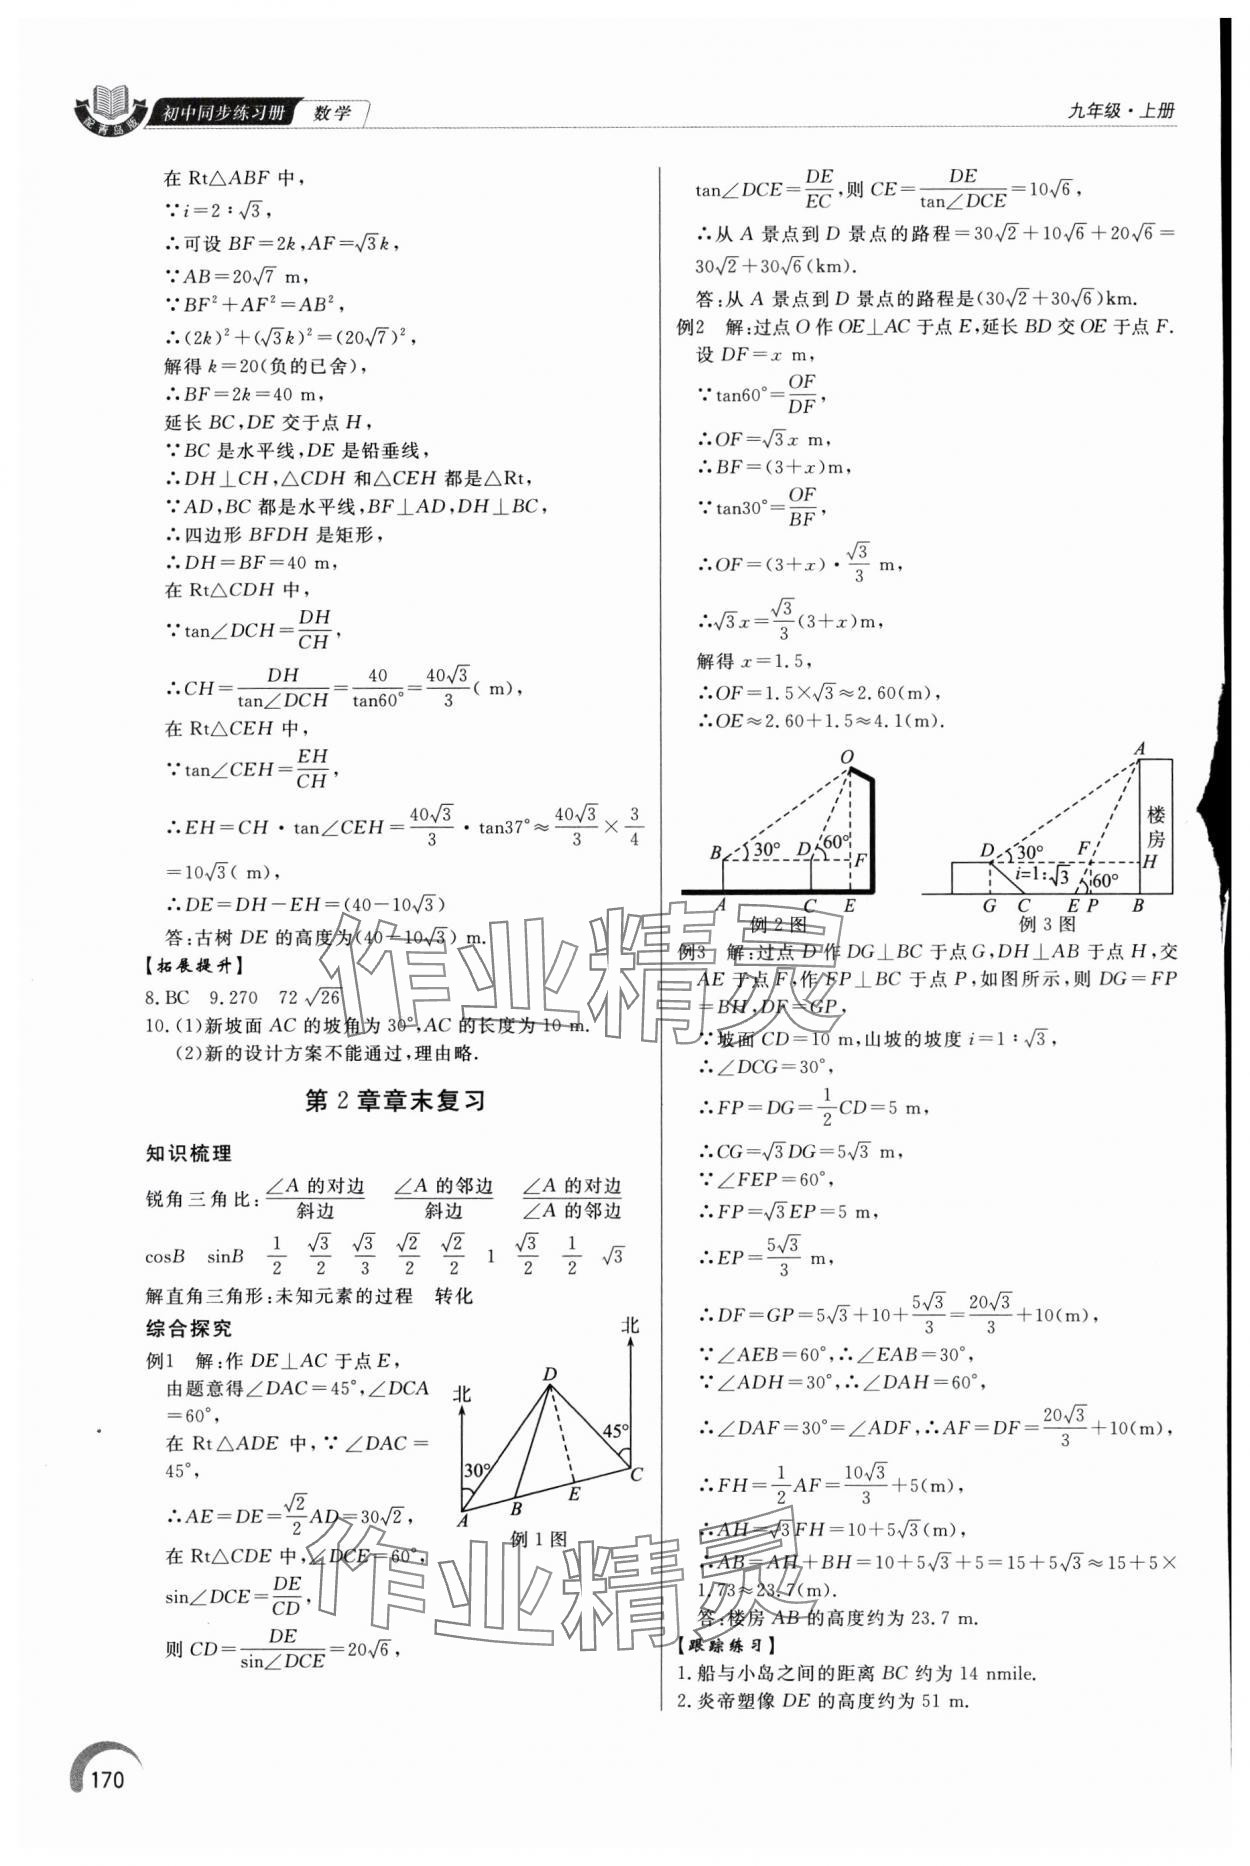 配青岛版
初中同步练习册 数学
九年级·上册
在 Rt△ABF 中，
∵i=2∶√3，
∴可设 BF=2k,AF=√3k，
∵AB=20√7 m，
∵BF²+AF²=AB²，
∴(2k)²+(√3k)²=(20√7)²，
解得 k=20(负的已舍)，
∴BF=2k=40 m，
延长 BC,DE 交于点 H，
∵BC 是水平线,DE 是铅垂线，
∴DH⊥CH,△CDH 和△CEH 都是△Rt，
∵AD,BC 都是水平线,BF⊥AD,DH⊥BC，
∴四边形 BFDH 是矩形，
∴DH=BF=40 m，
在 Rt△CDH 中，
∵tan∠DCH=DH/CH，
∴CH=DH/tan∠DCH=40/tan60°=40√3/3( m)，
在 Rt△CEH 中，
∵tan∠CEH=EH/CH，
∴EH=CH·tan∠CEH=40√3/3·tan37°≈40√3/3×3/4
=10√3( m)，
∴DE=DH−EH=(40−10√3)
答:古树 DE 的高度为(40−10√3) m.
【拓展提升】
8.BC 9.270 72 √26
10.(1)新坡面 AC 的坡角为 30°,AC 的长度为 10 m.
(2)新的设计方案不能通过,理由略.
第 2 章章末复习
知识梳理
锐角三角比:∠A 的对边/斜边 ∠A 的邻边/斜边 ∠A 的对边/∠A 的邻边
cosB sinB 1/2 √3/2 √3/3 √2/2 √2/2 1 √3/2 1/2 √3
解直角三角形:未知元素的过程 转化
综合探究
例1 解:作 DE⊥AC 于点 E，
由题意得∠DAC=45°,∠DCA
=60°，
在 Rt△ADE 中,∵∠DAC=
45°，
∴AE=DE=√2/2AD=30√2，
在 Rt△CDE 中,∠DCE=60°，
sin∠DCE=DE/CD，
则 CD=DE/sin∠DCE=20√6，
北
北
D
45°
30°
C
E
B
A
例 1 图
tan∠DCE=DE/EC,则 CE=DE/tan∠DCE=10√6，
∴从 A 景点到 D 景点的路程=30√2+10√6+20√6=
30√2+30√6(km).
答:从 A 景点到 D 景点的路程是(30√2+30√6)km.
例2 解:过点 O 作 OE⊥AC 于点 E,延长 BD 交 OE 于点 F.
设 DF=x m，
∵tan60°=OF/DF，
∴OF=√3x m，
∴BF=(3+x)m，
∵tan30°=OF/BF，
∴OF=(3+x)·√3/3 m，
∴√3x=√3/3(3+x)m，
解得 x=1.5，
∴OF=1.5×√3≈2.60(m)，
∴OE≈2.60+1.5≈4.1(m).
O
B 30° D 60° F
A C E
例 2 图
A
楼房
D 30° F H
i=1∶√3 60°
G C E P B
例 3 图
例3 解:过点 D 作 DG⊥BC 于点 G,DH⊥AB 于点 H,交
AE 于点 F,作 FP⊥BC 于点 P,如图所示,则 DG=FP
=BH,DF=GP，
∵坡面 CD=10 m,山坡的坡度 i=1∶√3，
∴∠DCG=30°，
∴FP=DG=1/2CD=5 m，
∴CG=√3DG=5√3 m，
∵∠FEP=60°，
∴FP=√3EP=5 m，
∴EP=5√3/3 m，
∴DF=GP=5√3+10+5√3/3=20√3/3+10(m)，
∵∠AEB=60°,∴∠EAB=30°，
∵∠ADH=30°,∴∠DAH=60°，
∴∠DAF=30°=∠ADF,∴AF=DF=20√3/3+10(m)，
∴FH=1/2AF=10√3/3+5(m)，
∴AH=√3FH=10+5√3(m)，
∴AB=AH+BH=10+5√3+5=15+5√3≈15+5×
1.73≈23.7(m).
答:楼房 AB 的高度约为 23.7 m.
【跟踪练习】
1.船与小岛之间的距离 BC 约为 14 nmile.
2.炎帝塑像 DE 的高度约为 51 m.
作业精灵
作业精灵
170